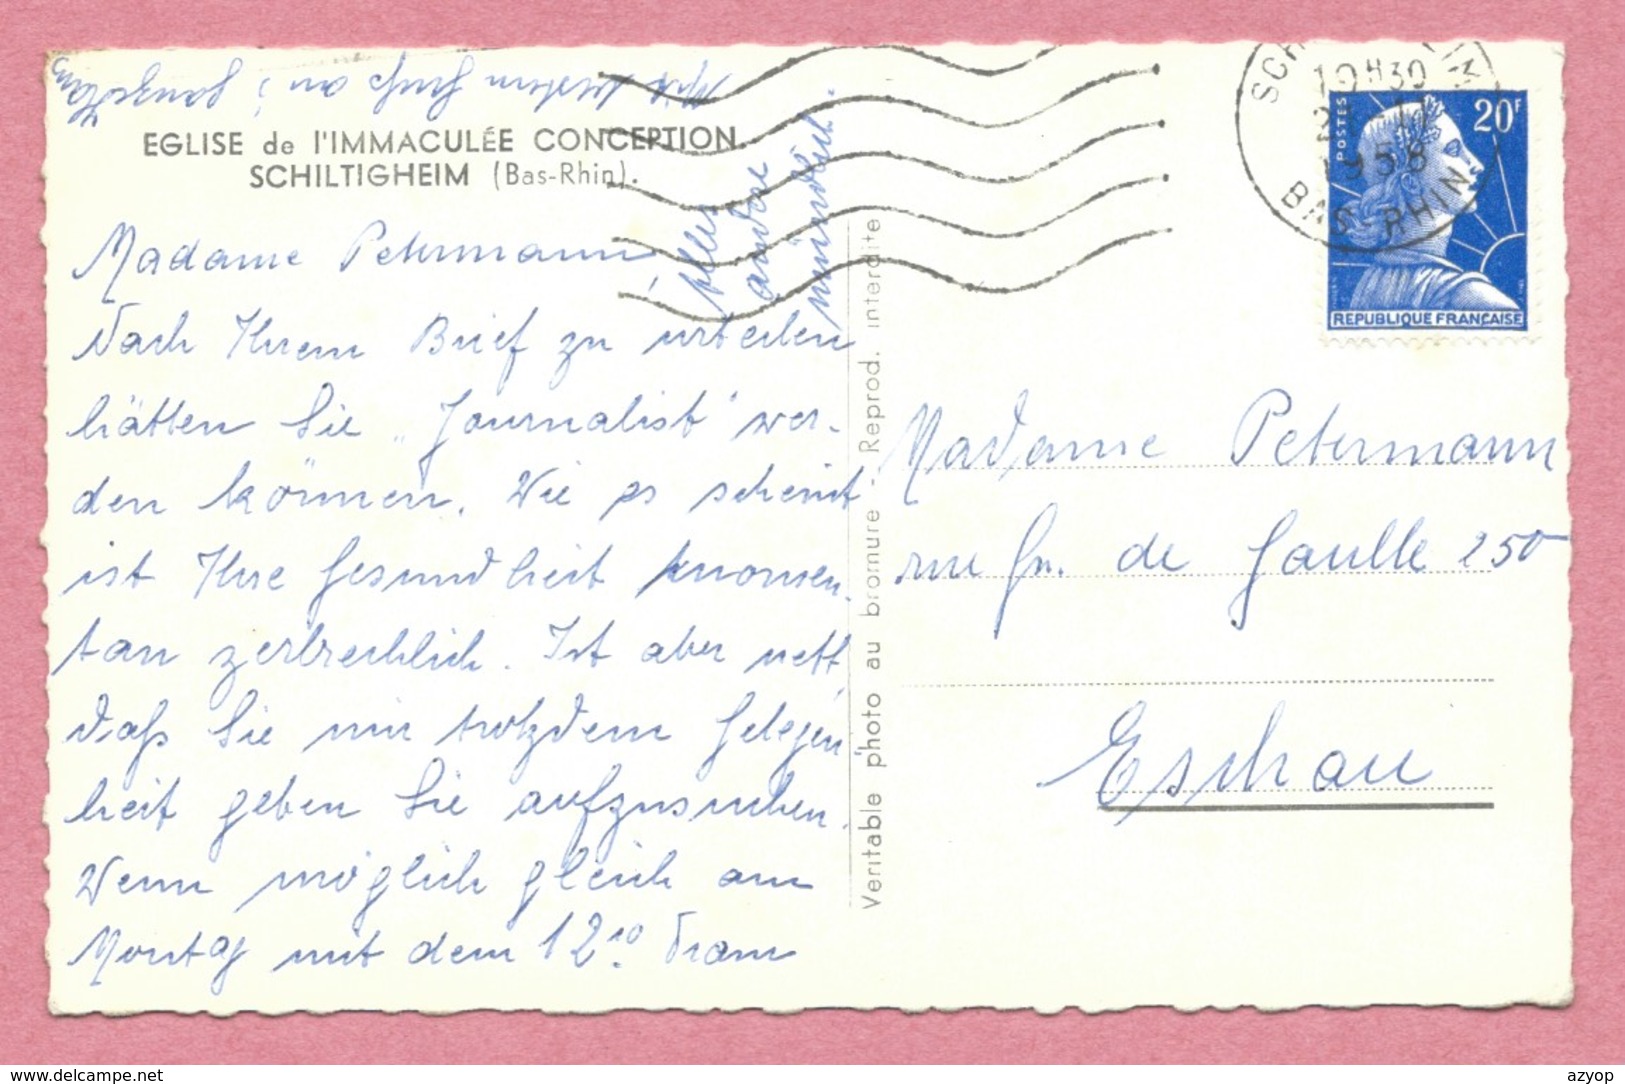 EGLISE de l'IMMACULÉE CONCEPTION.
SCHILTIGHEIM (Bas-Rhin).
Madame Petermann,
Nach Ihrem Brief zu urteilen
hätten Sie „Journalist" wer-
den können. Wie es scheint
ist Ihre Gesundheit
tan zerbrechlich. Ist aber nett,
daß Sie mir trotzdem Gelegen
heit geben Sie aufzusuchen.
Wenn möglich gleich am
Montag mit dem 12¹⁰ Tram
Mit besten Gruß an
Alles
andere
mündlich.
Veritable photo au bromure Reprod. interdite
10H30
1958
BAS-RHIN
POSTES
20F
REPUBLIQUE FRANÇAISE
Madame Petermann
rue Gn. de Gaulle 250
Eschau
delcampe.net
azyop